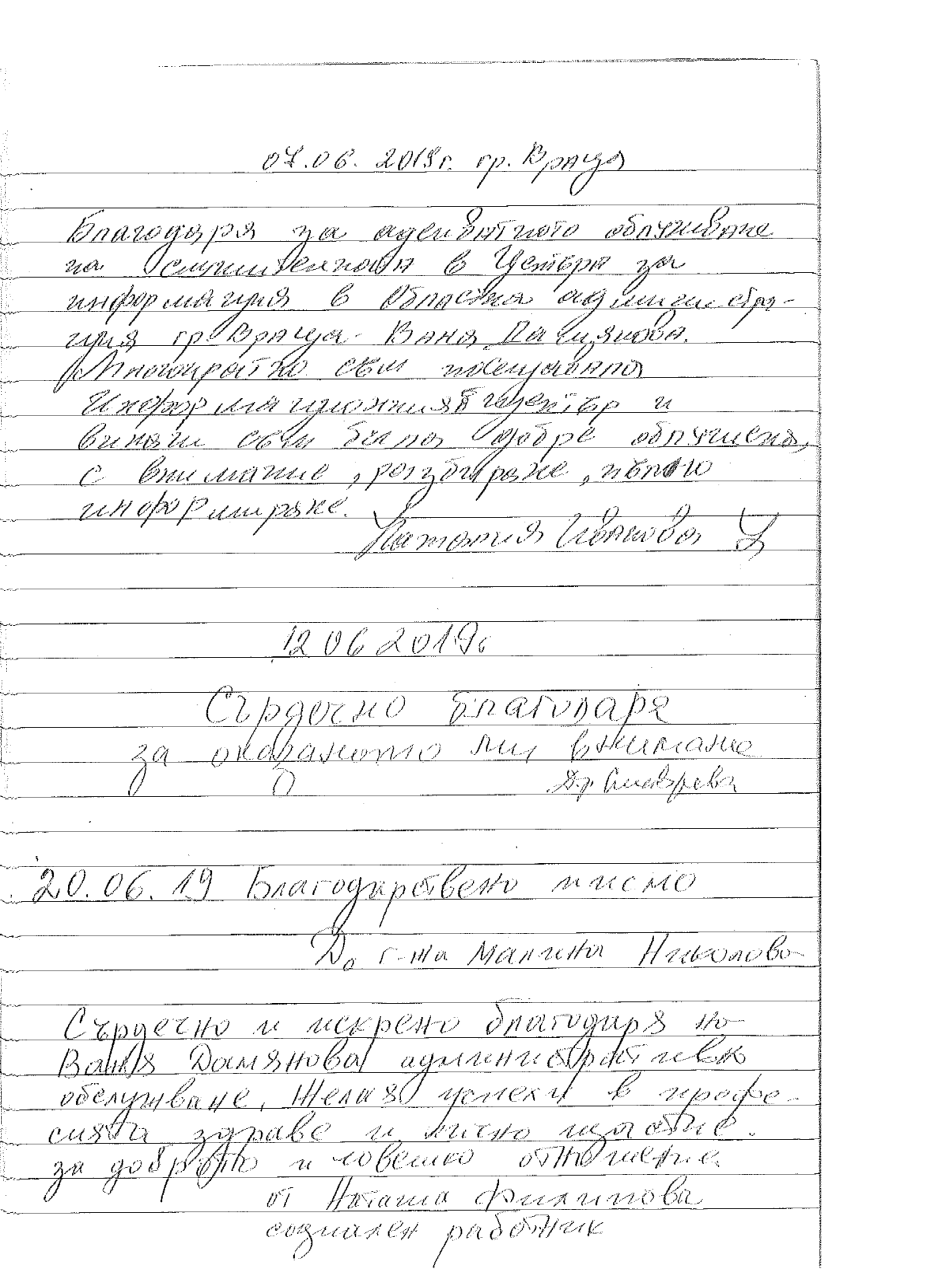 07.06.2019г. гр. Враца
Благодаря за адекватното обслужване
на служителката в Центъра за
информация в Областна администра-
ция гр. Враца - Ваня Дамянова.
Многократно съм посещавала
Информационния център и
винаги съм била добре обслужена,
с внимание, разбиране, пълно
информиране.
Наталия Иванова
12 06 2019г
Сърдечно благодаря
за оказаното ми внимание
Д-р
20.06.19 Благодарствено писмо
До г-жа Малина Николова
Сърдечно и искрено благодаря на
Ваня Дамянова административно
обслужване. Желая успехи в профе-
сията здраве и лично щастие.
за доброто и човешко отношение.
от Наташа Филипова
социален работник